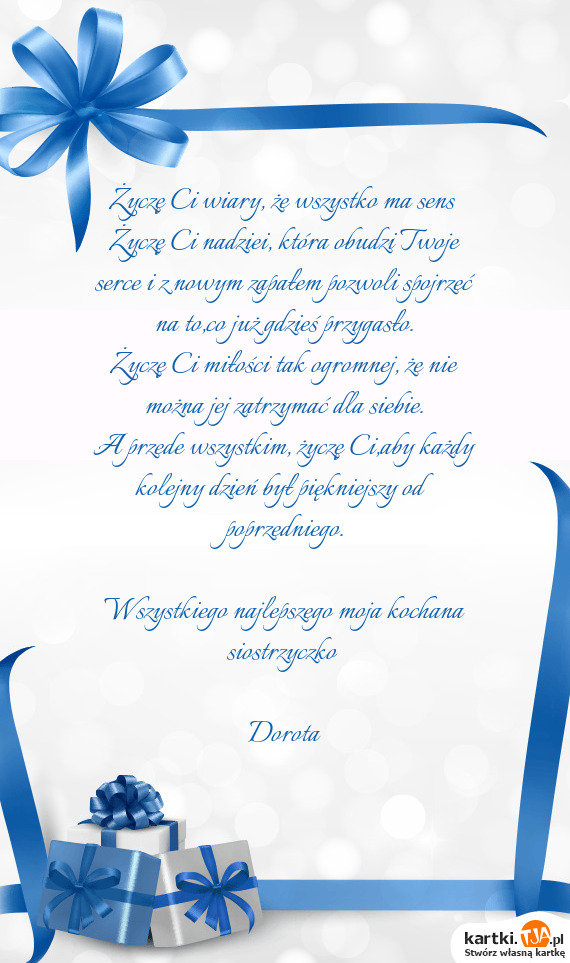 Życzę Ci wiary, że wszystko ma sens
Życzę Ci nadziei, która obudzi Twoje
serce i z nowym zapałem pozwoli spojrzęć
na to,co już gdzieś przygasło.
Życzę Ci miłości tak ogromnej, że nie
można jej zatrzymać dla siebie.
A przede wszystkim, życzę Ci,aby każdy
kolejny dzień był piękniejszy od
poprzedniego.
Wszystkiego najlepszego moja kochana
siostrzyczko
Dorota
kartki.TJA.pl
Stwórz własną kartkę